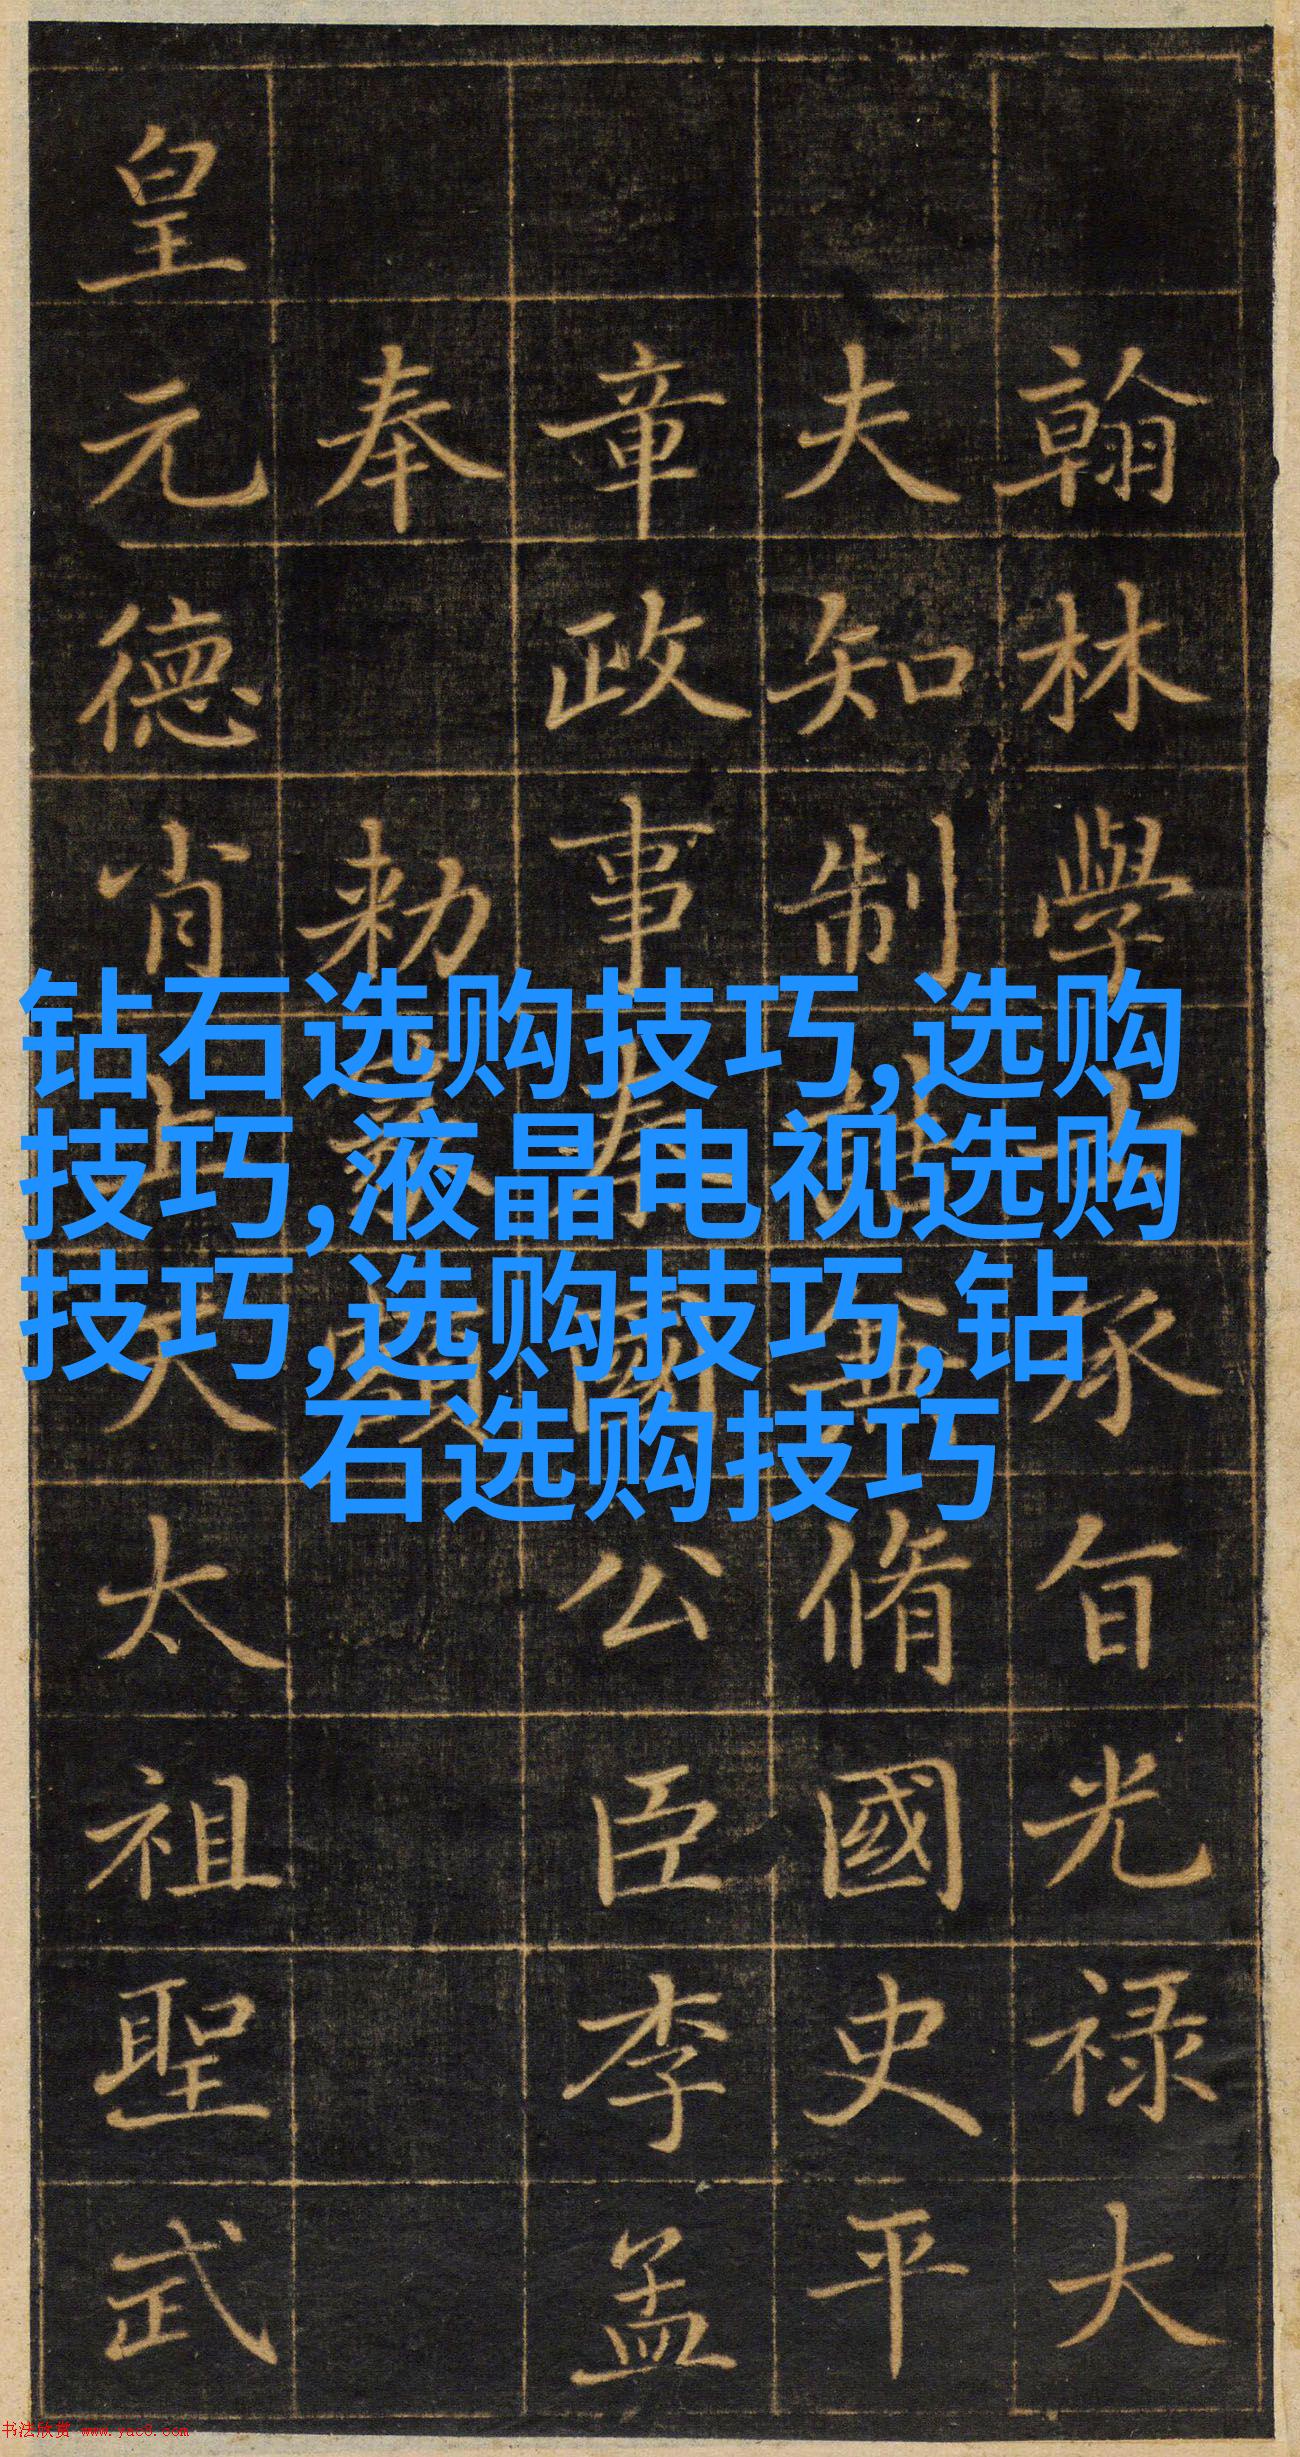 翰林學士承旨光禄大
夫知制誥兼脩國史平
章政事秦國公臣李孟
奉勅篆額
皇元德肖上天太祖聖武
钻石选购技巧,选购
技巧,液晶电视选购
技巧,选购技巧,钻
石选购技巧
书法欣赏 www.yac8.com